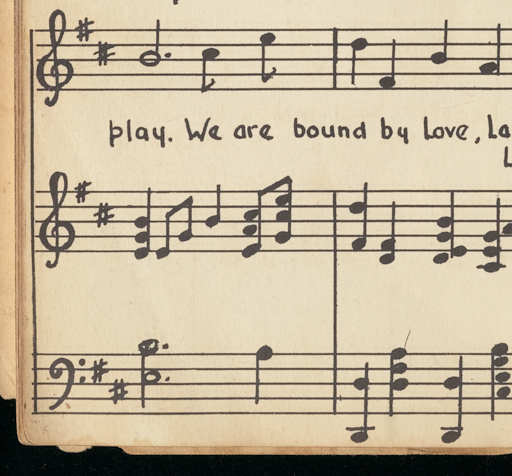 play. We are bound by Love, La
L